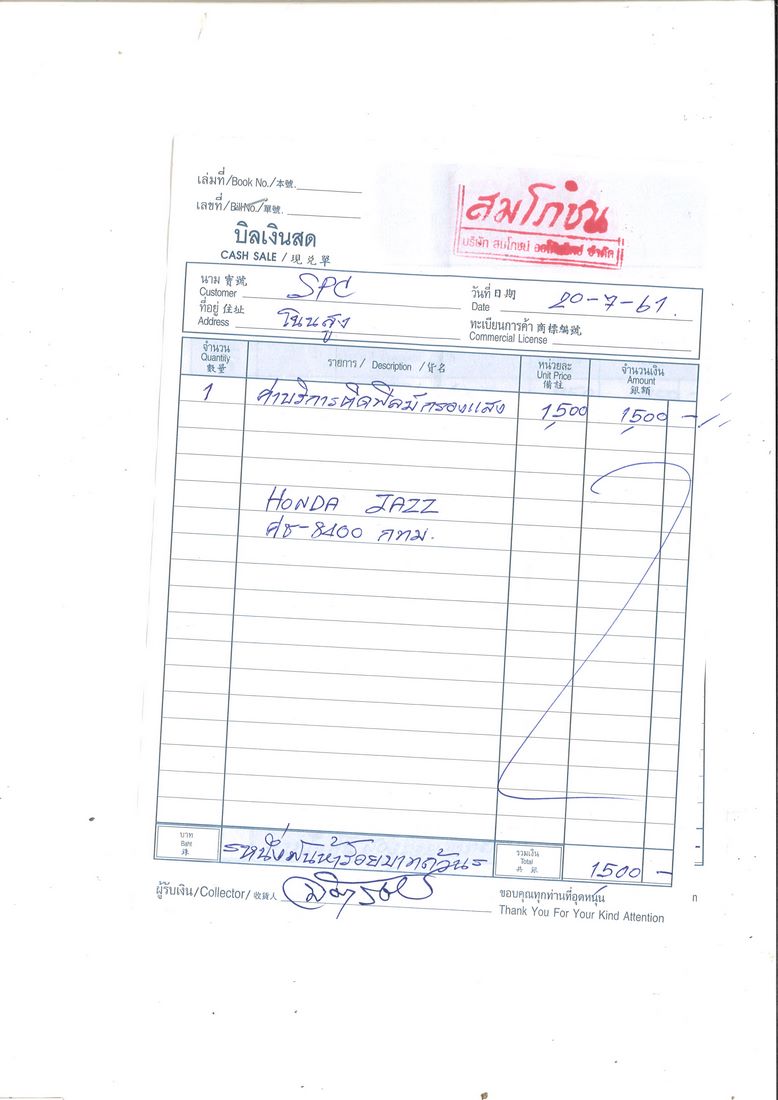 เล่มที่/Book No./本號.
เลขที่/Bill No./單號.
สมโภชน
บริษัท สมโภชน์ จำกัด
บิลเงินสด
CASH SALE / 現兑單
นาม 寶號 SPC วันที่ 日期 20-7-61.
Customer Date
ที่อยู่ 住址 โนนสูง ทะเบียนการค้า 商標編號
Address Commercial License
จำนวน รายการ / Description / 貨名 หน่วยละ จำนวนเงิน
Quantity Unit Price Amount
數量 備註 銀額
1 ค่าบริการติดฟิลม์กรองแสง 1,500 1,500 -
HONDA JAZZ
ศช-8400 กทม.
บาท =หนึ่งพันห้าร้อยบาทถ้วน= รวมเงิน 1,500 -
Baht Total
銖 共銀
ผู้รับเงิน/Collector/收貨人 ขอบคุณทุกท่านที่อุดหนุน
Thank You For Your Kind Attention